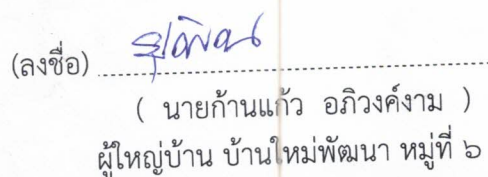 (ลงชื่อ)
( นายก้านแก้ว อภิวงค์งาม )
ผู้ใหญ่บ้าน บ้านใหม่พัฒนา หมู่ที่ ๖